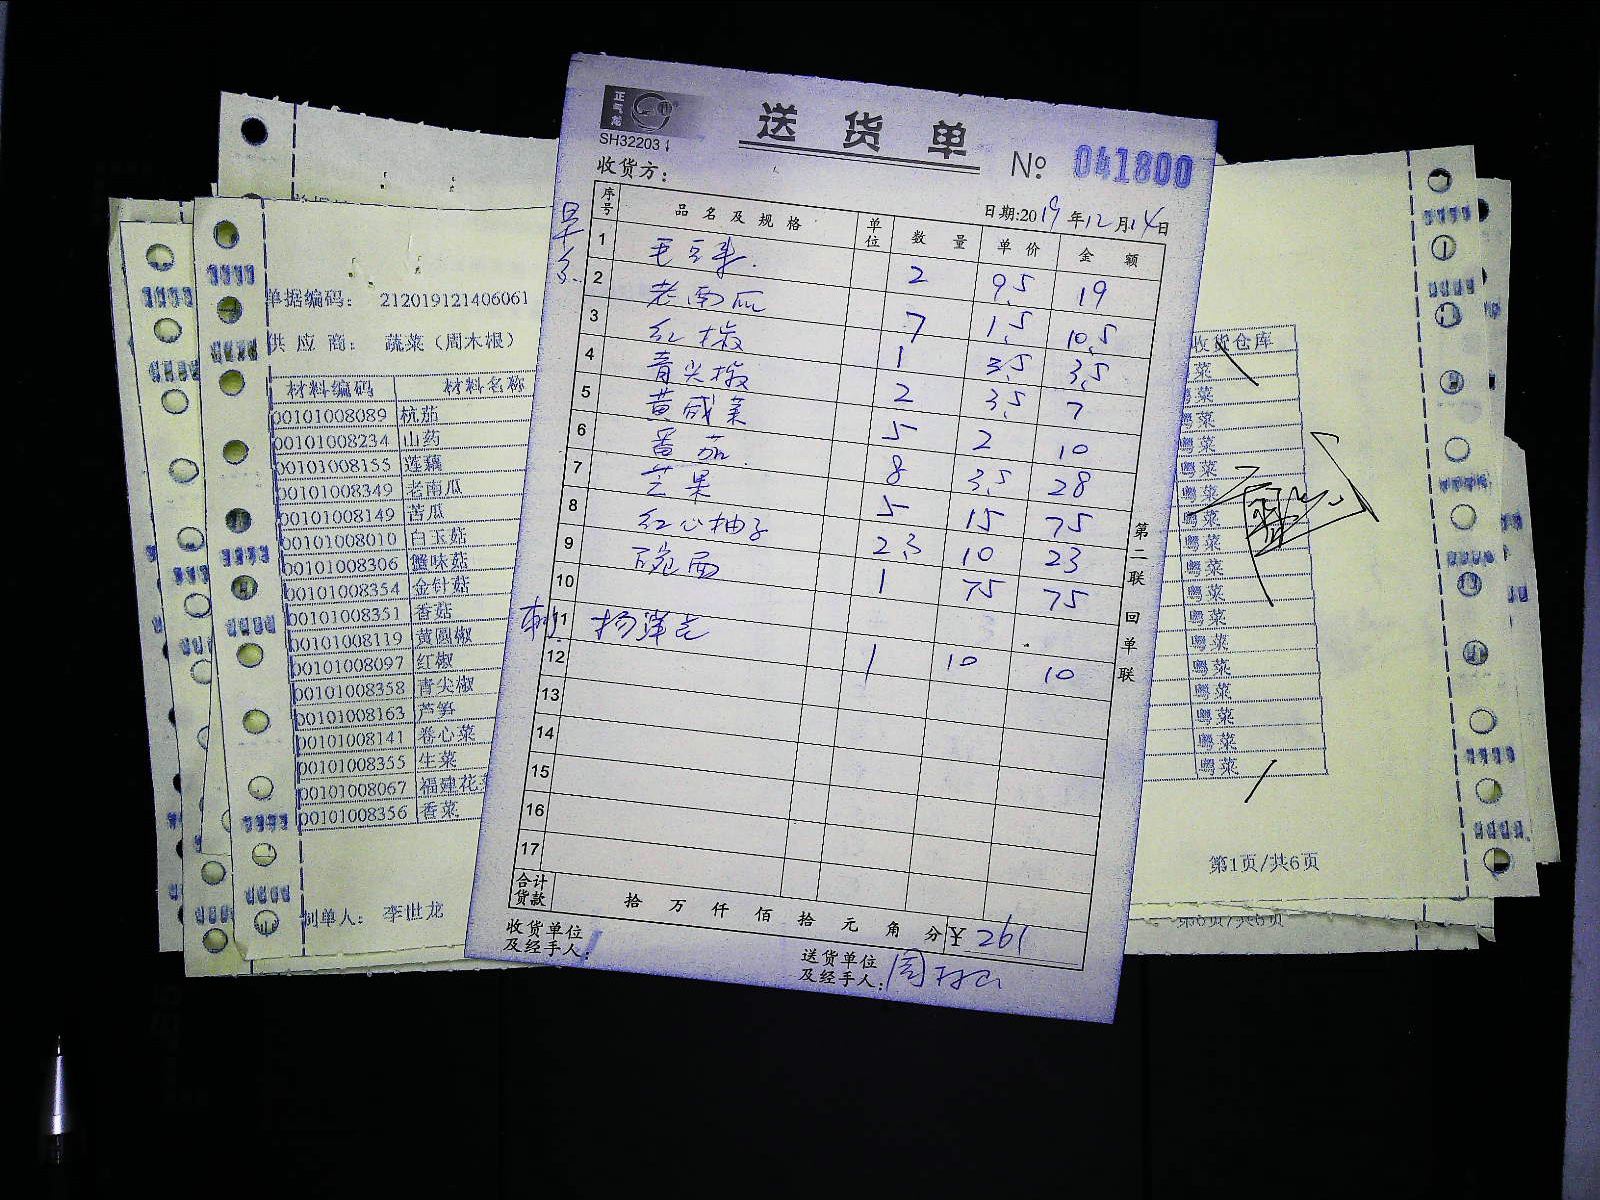 正气龙
SH322031
送货单
№ 041800
收货方：
日期:2019年12月14日
序号 品名及规格 单位 数量 单价 金额
1 毛豆米 2 9.5 19
2 老南瓜 7 1.5 10.5
3 红椒 1 3.5 3.5
4 青尖椒 2 3.5 7
5 黄咸菜 5 2 10
6 番茄 8 3.5 28
7 芒果 5 15 75
8 红心柚子 2.3 10 23
9 碗面 1 75 75
10
11
12 1 10 10
13
14
15
16
17
合计货款 拾 万 仟 佰 拾 元 角 分 ¥261
收货单位及经手人：
送货单位及经手人：周
第二联 回单联
单据编码： 212019121406061
供应商： 蔬菜（周木根）
材料编码 材料名称
00101008089 杭茄
00101008234 山药
00101008155 莲藕
00101008349 老南瓜
00101008149 苦瓜
00101008010 白玉菇
00101008306 蟹味菇
00101008354 金针菇
00101008351 香菇
00101008119 黄圆椒
00101008097 红椒
00101008358 青尖椒
00101008163 芦笋
00101008141 卷心菜
00101008355 生菜
00101008067 福建花
00101008356 香菜
制单人： 李世龙
收货仓库
菜
粤菜
粤菜
粤菜
粤菜
粤菜
粤菜
粤菜
粤菜
粤菜
粤菜
粤菜
粤菜
粤菜
粤菜
粤菜
粤菜
第1页/共6页
第6页/共6页